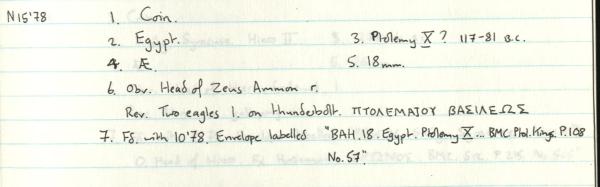 N15'78
1. Coin.
2. Egypt. 3. Ptolemy X ? 117-81 B.C.
4. Æ. 5. 18mm.
6. Obv. Head of Zeus Ammon r.
Rev. Two eagles l. on thunderbolt. ΠΤΟΛΕΜΑΙΟΥ ΒΑΣΙΛΕΩΣ
7. Fd. with 10'78. Envelope labelled "BAH.18. Egypt. Ptolemy X... BMC Ptol. Kings. P.108
No.57".